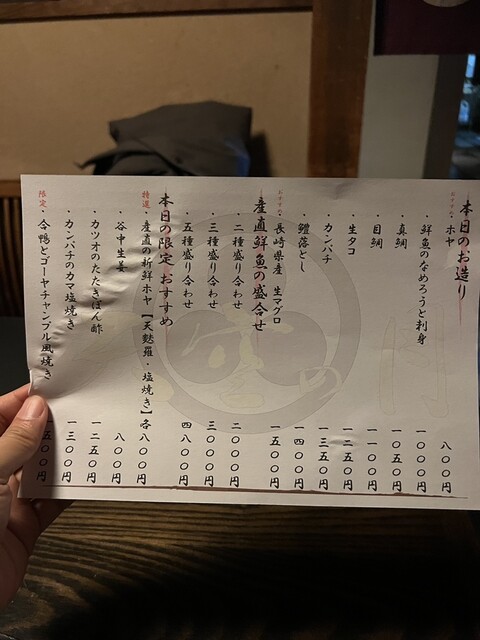 本日のお造り
おすすめ・ホヤ 八〇〇円
・鮮魚のなめろうと刺身 一〇〇〇円
・真鯛 一〇五〇円
・目鯛 一一〇〇円
・生タコ 一二五〇円
・カンパチ 一三五〇円
・鱧落とし 一四〇〇円
おすすめ・長崎県産 生マグロ 一五〇〇円
産直鮮魚の盛合せ
・二種盛り合わせ 二〇〇〇円
・三種盛り合わせ 三〇〇〇円
・五種盛り合わせ 四八〇〇円
本日の限定 おすすめ
特選・産直の新鮮ホヤ【天麩羅・塩焼き】各八〇〇円
・谷中生姜 八〇〇円
・カツオのたたきぽん酢 一二五〇円
・カンパチのカマ塩焼き 一三〇〇円
限定・合鴨とゴーヤチャンプル風焼き 一五〇〇円